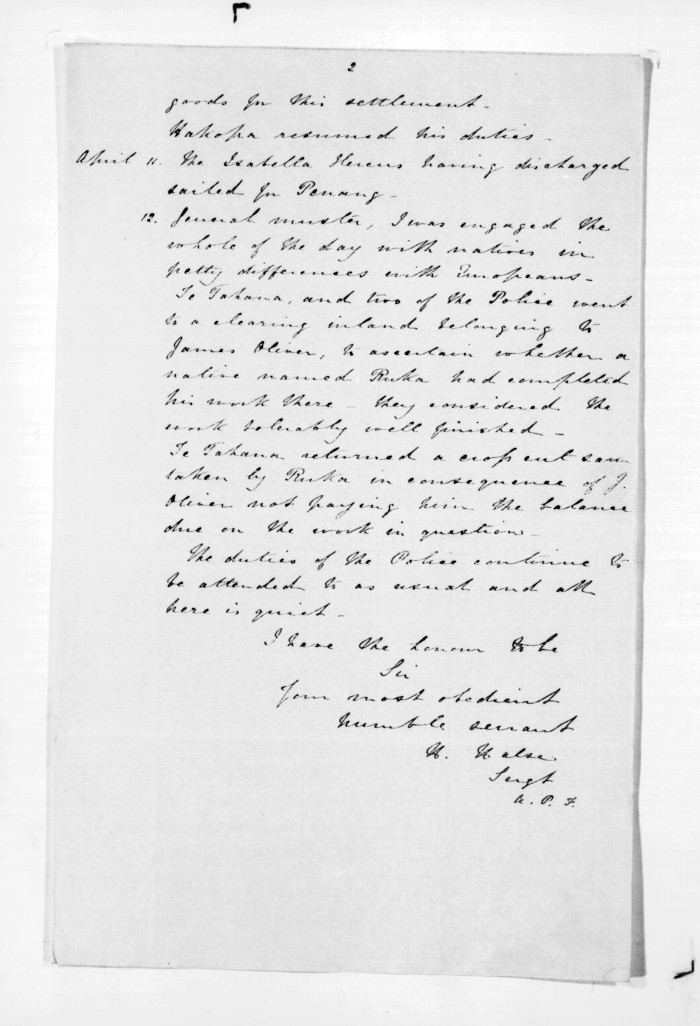 2
goods for this settlement.
Hakopa resumed his duties.
April 11. The Isabella Hercus having discharged
sailed for Penang.
12. General muster, I was engaged the
whole of the day with natives in
petty differences with Europeans.
Te Tahana, and two of the Police went
to a clearing inland belonging to
James Oliver, to ascertain whether a
native named Ruka had completed
his work there - they considered the
work tolerably well finished -
Te Tahana returned a cross cut saw
taken by Ruka in consequence of J.
Oliver not paying him the balance
due on the work in question -
The duties of the Police continue to
be attended to as usual and all
here is quiet -
I have the honour to be
Sir
Your most obedient
humble servant
H. Halse
Sergt
A. P. F.